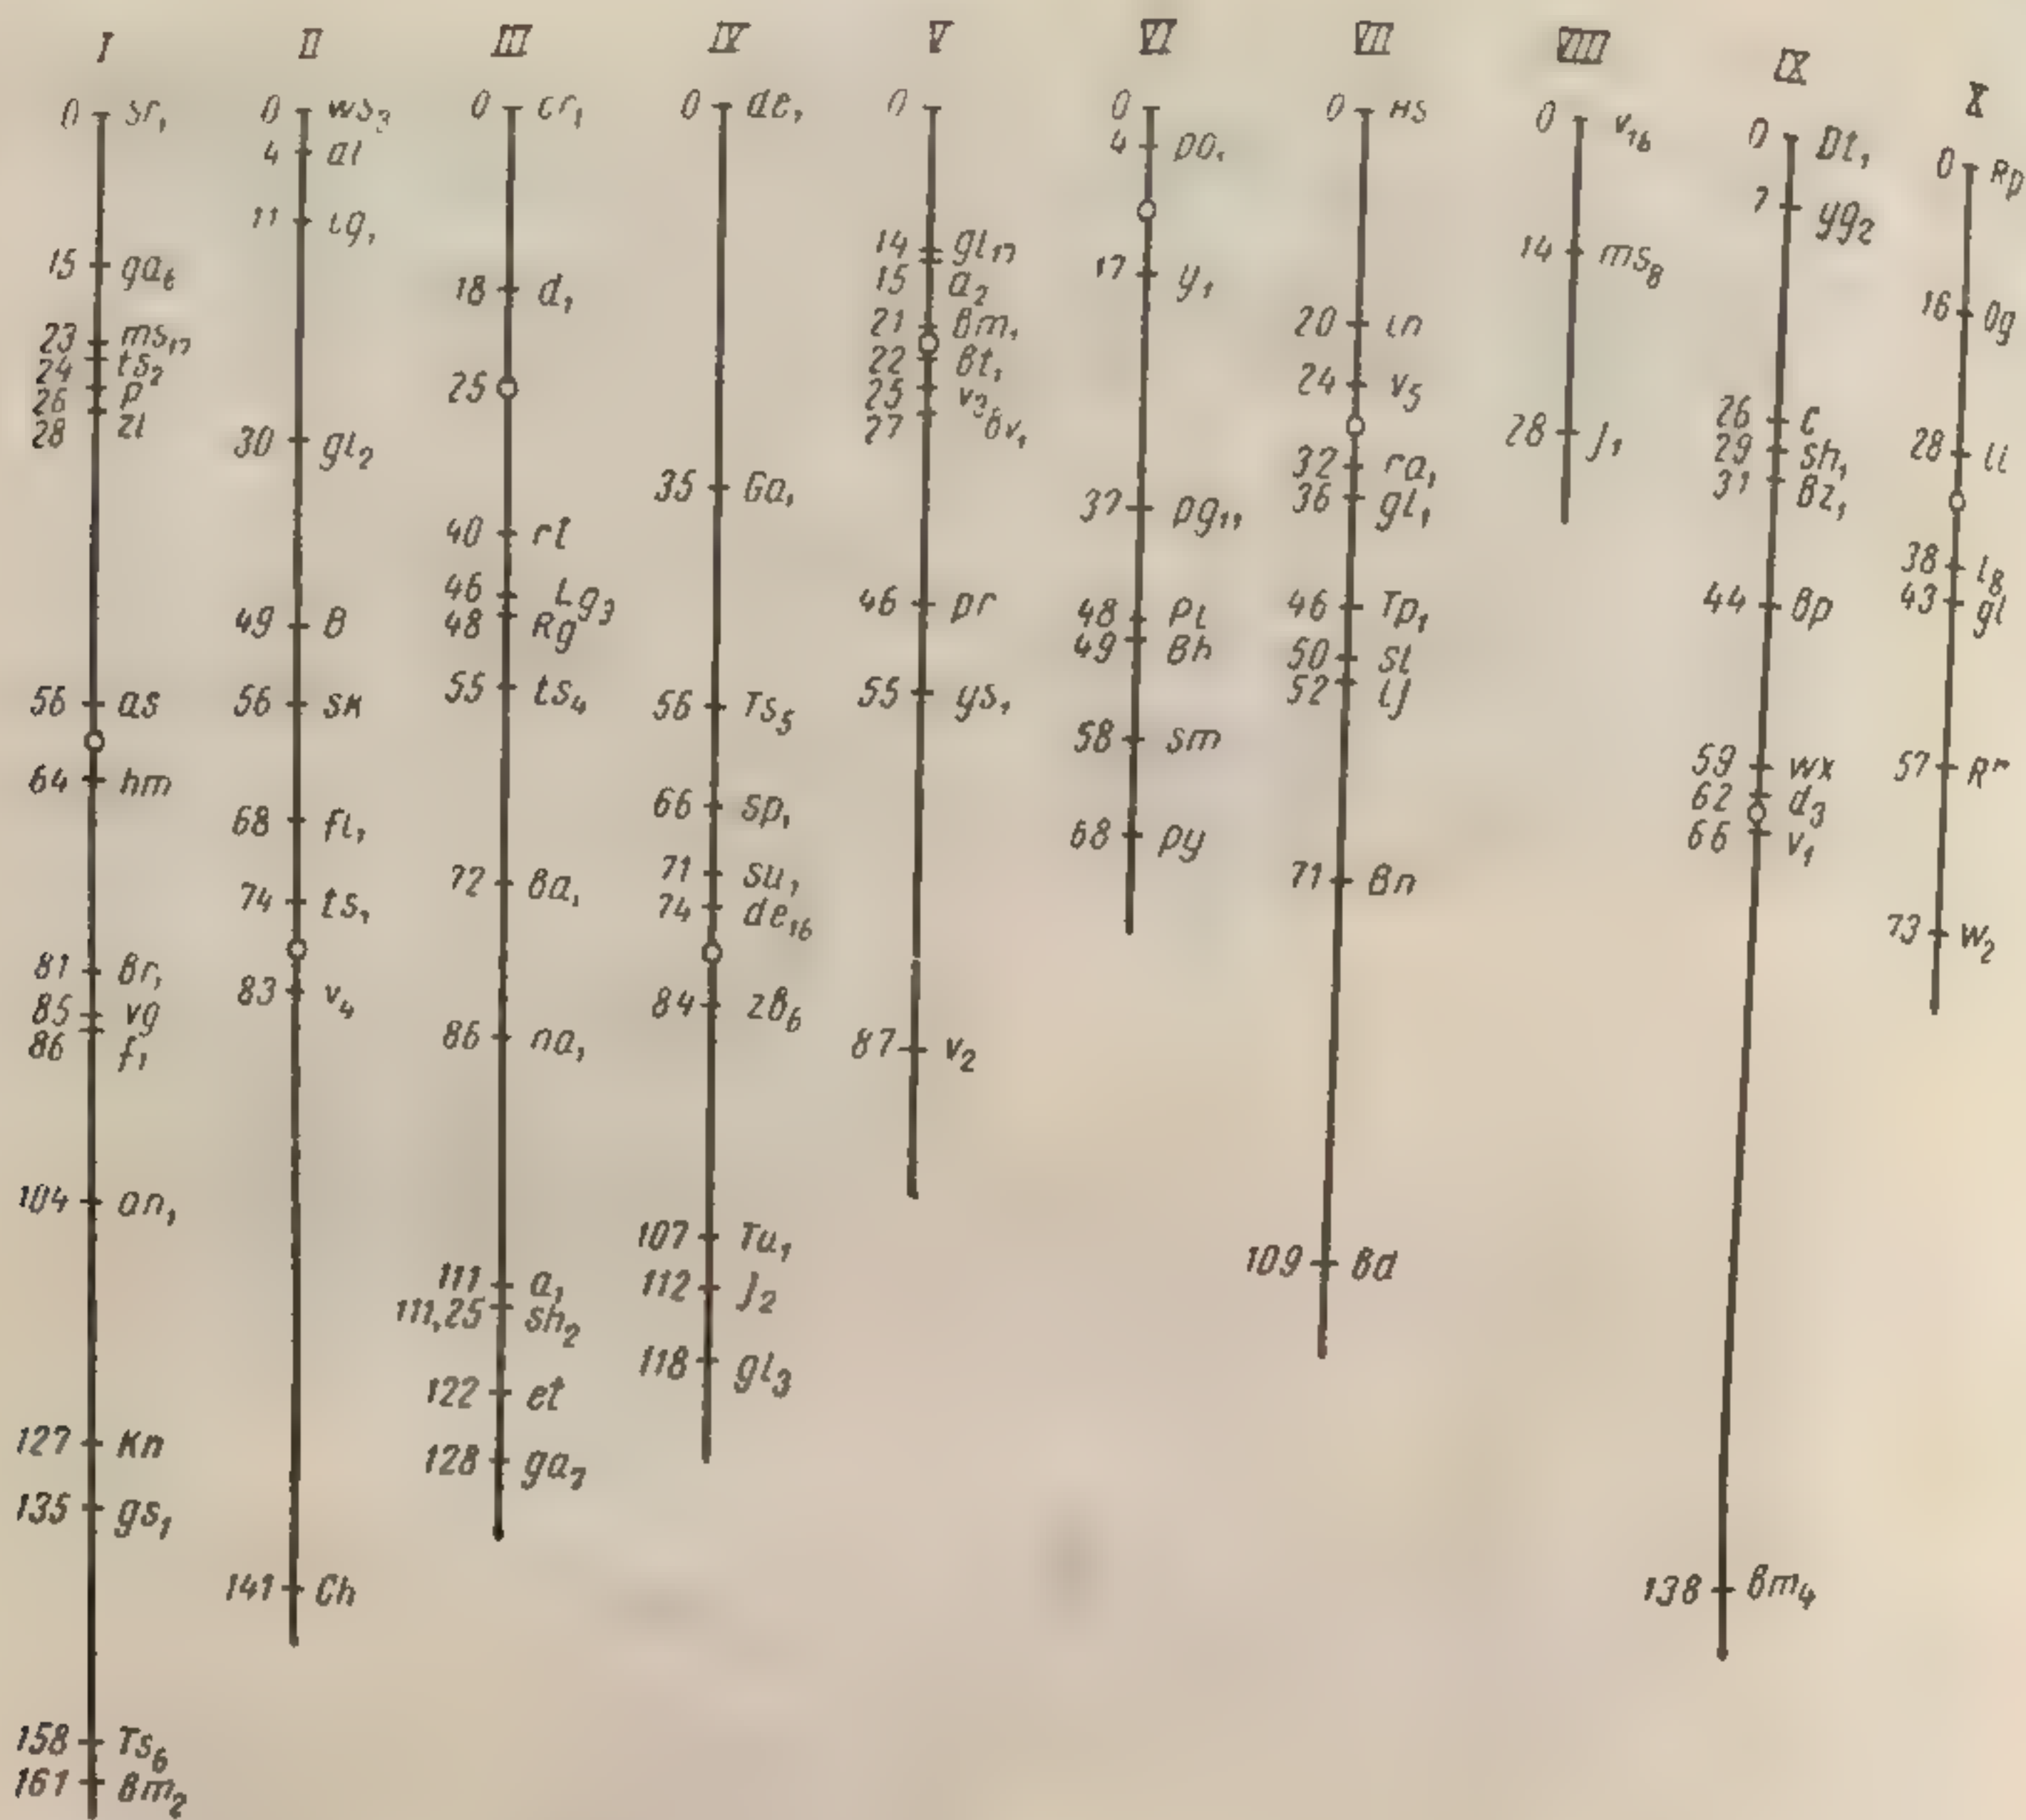 I
0 sr₁
15 ga₆
23 ms₁₇
24 ts₂
26 p
28 zl
56 as
64 hm
81 br₁
85 vg
86 f₁
104 an₁
127 Kn
135 gs₁
158 Ts₆
161 bm₂
II
0 ws₃
4 al
11 lg₁
30 gl₂
49 B
56 sk
68 fl₁
74 ts₁
83 v₄
141 Ch
III
0 cr₁
18 d₁
25
40 rt
46 Lg₃
48 Rg
55 ts₄
72 ba₁
86 na₁
111 a₁
111,25 sh₂
122 et
128 ga₇
IV
0 de₁
35 Ga₁
56 Ts₅
66 sp₁
71 su₁
74 de₁₆
84 zb₆
107 Tu₁
112 j₂
118 gl₃
V
0
14 gl₁₇
15 a₂
21 bm₁
22 bt₁
25 v₃
27 bv₁
46 pr
55 ys₁
87 v₂
VI
0
4 po₁
17 y₁
37 pg₁₁
48 Pl
49 Bh
58 sm
68 py
VII
0 Hs
20 in
24 v₅
32 ra₁
36 gl₁
46 Tp₁
50 sl
52 ij
71 Bn
109 bd
VIII
0 v₁₆
14 ms₈
28 j₁
IX
0 Dt₁
7 yg₂
26 C
29 sh₁
31 bz₁
44 bp
59 wx
62 d₃
66 v₁
138 bm₄
X
0 Rp
16 Og
28 li
38 l₈
43 gl
57 R^r
73 w₂